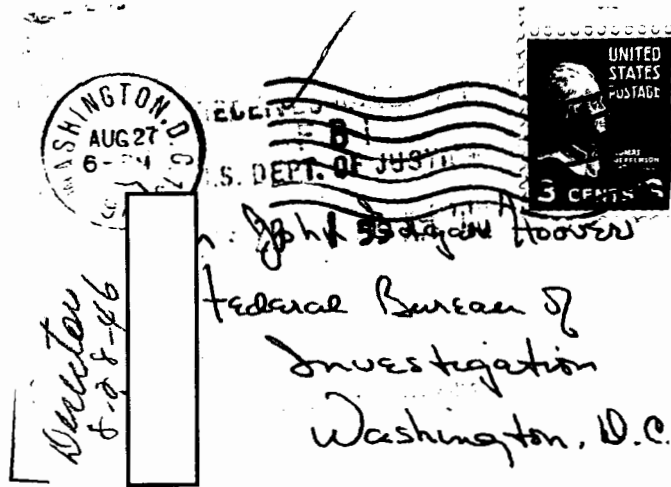 WASHINGTON, D.C.
AUG 27
6-PM
RECEIVED
F B I
U.S. DEPT. OF JUSTICE
UNITED
STATES
POSTAGE
THOMAS
JEFFERSON
3 CENTS 3
John Edgar Hoover
Federal Bureau of
Investigation
Washington, D.C.
Director
8-28-46